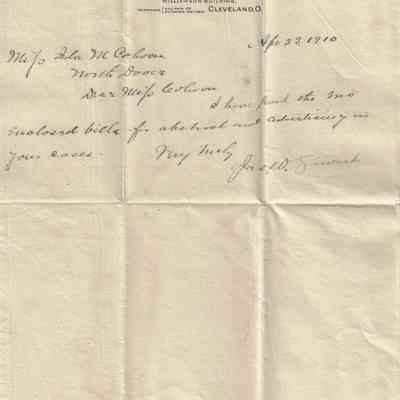 WILLIAMSON BUILDING,
CLEVELAND, O.
Apr 22 1910
Miss M Cahoon
North Dover
Dear Miss Cahoon
I have paid the two
enclosed bills for abstract and advertising in
your cases.
Very truly